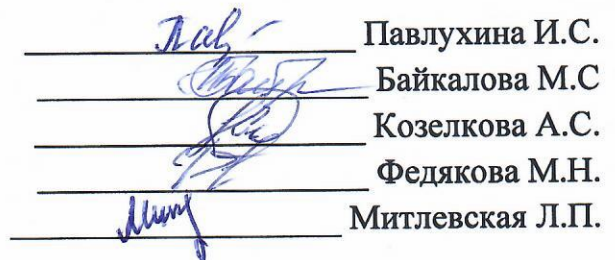 Павлухина И.С.
Байкалова М.С
Козелкова А.С.
Федякова М.Н.
Митлевская Л.П.